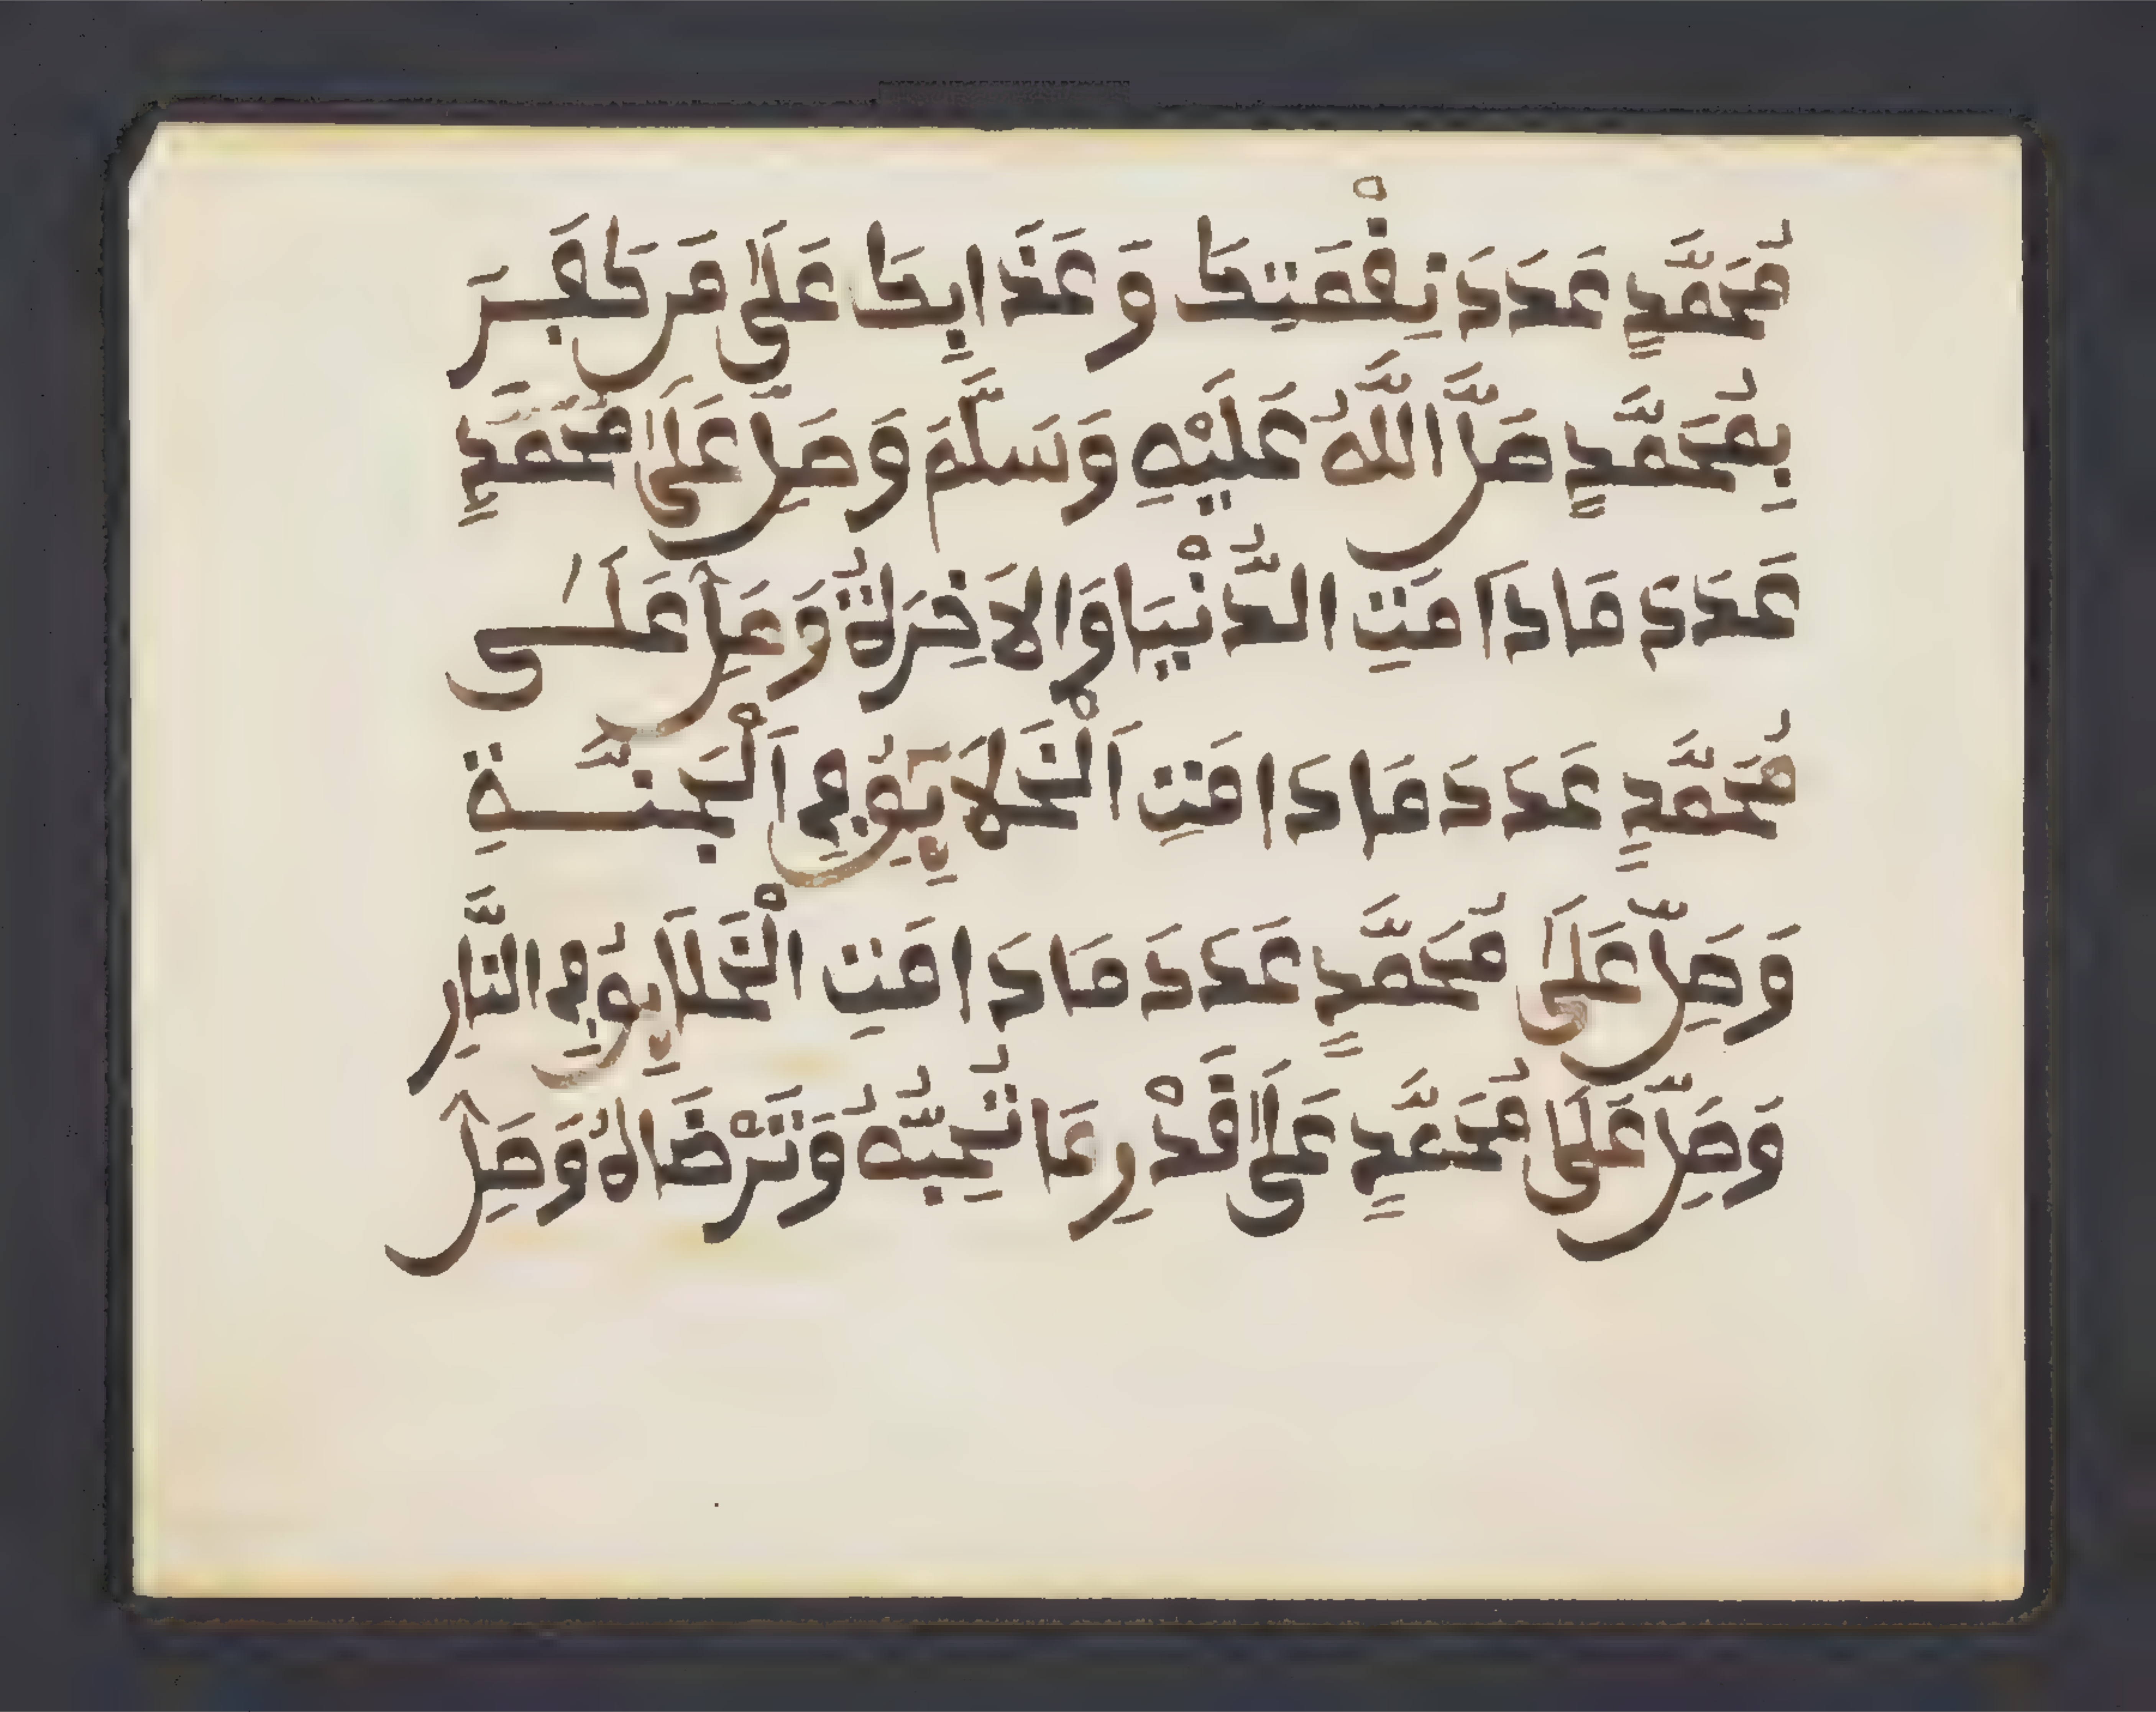 مُحَمَّدٍ عَدَدَ نِقْمَتِكَ وَعَذَابِكَ عَلَى مَن كَفَرَ
بِمُحَمَّدٍ صَلَّ اللَّهُ عَلَيْهِ وَسَلَّمَ وَصَلِّ عَلَى مُحَمَّدٍ
عَدَدَ مَا دَامَتِ الدُّنْيَا وَالاَخِرَةُ وَصَلِّ عَلَى
مُحَمَّدٍ عَدَدَ مَا دَامَتِ اَلْخَلاَيِقُ فِي اَلْجَنَّةِ
وَصَلِّ عَلَى مُحَمَّدٍ عَدَدَ مَا دَامَتِ الْخَلَايِقُ فِي النَّارِ
وَصَلِّ عَلَى مُحَمَّدٍ عَلَى قَدْرِ مَا تُحِبُّهُ وَتَرْضَاهُ وَصَلِّ